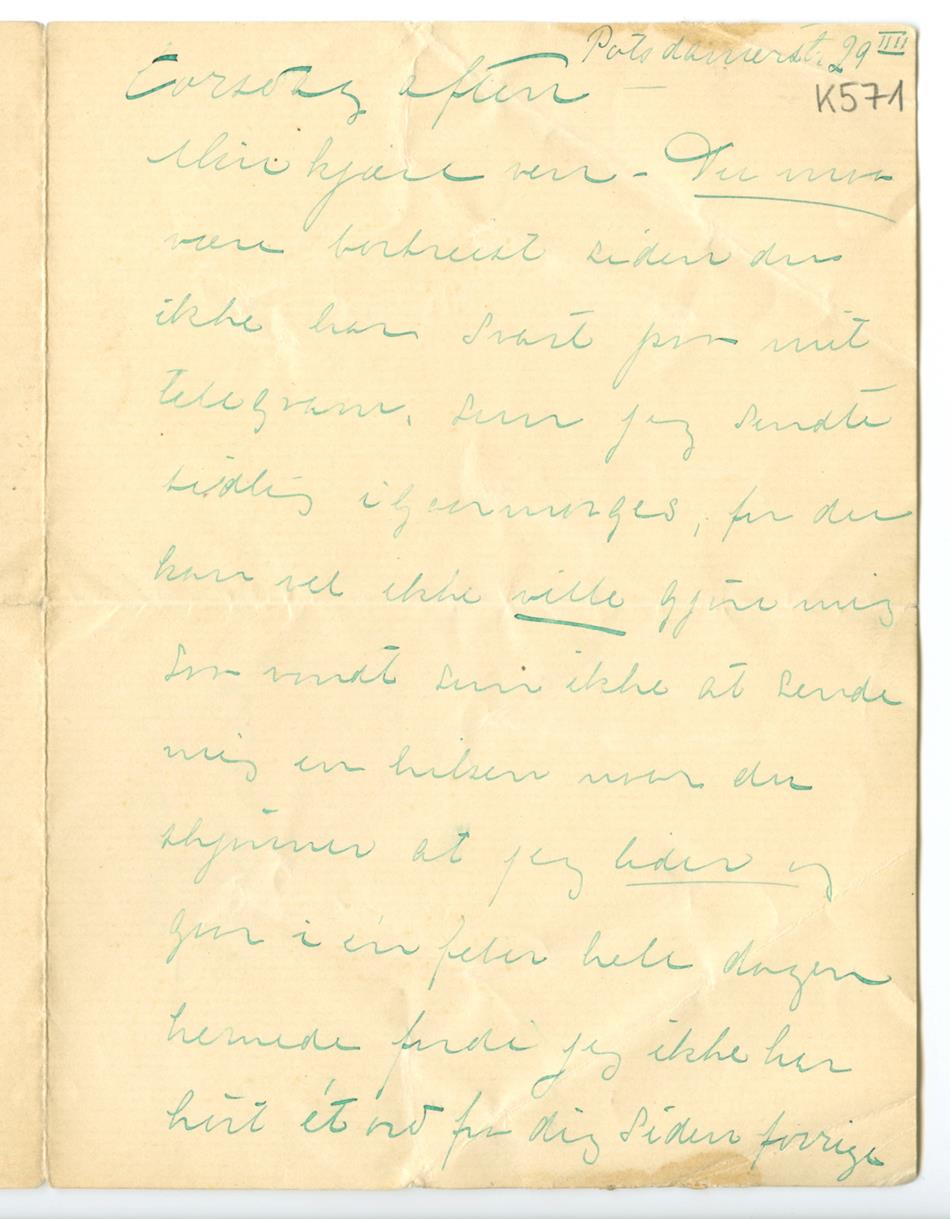 Potsdamerst. 29 IIII
K571
Torsdag aften
Min kjære ven – Du maa
være bortreist siden du
ikke har svart paa mit
telegram, som jeg sendte
tidlig igaarmorges, for du
kan vel ikke ville gjøre mig
saa vondt som ikke at sende
mig en hilsen naar du
skjønner at jeg lider og
gaar i én feber hele dagen
hernede fordi jeg ikke har
hørt ét ord fra dig siden forrige